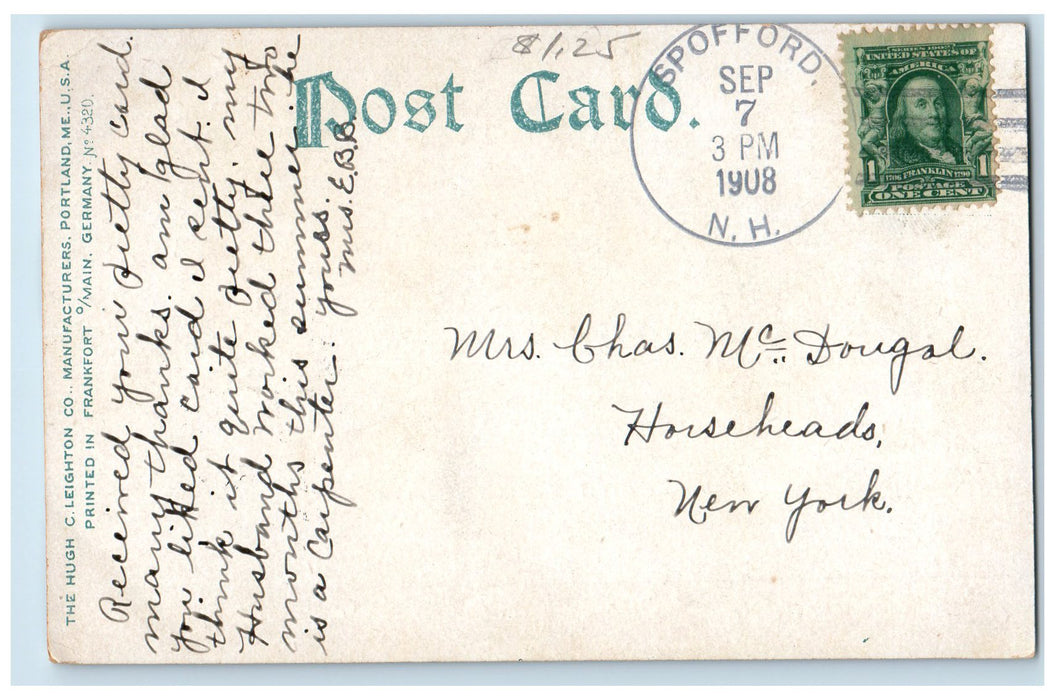 $1.25
Post Card.
SPOFFORD.
SEP
7
3 PM
1908
N. H.
SERIES 1902
UNITED STATES OF
AMERICA
1 1706 FRANKLIN 1790 1
POSTAGE
ONE CENT
THE HUGH C. LEIGHTON CO., MANUFACTURERS, PORTLAND, ME., U.S.A.
PRINTED IN FRANKFORT O/MAIN, GERMANY. No 4320.
Received your pretty card.
many thanks. am glad
you liked card I sent. I
think it quite pretty. my
Husband worked there two
months this summer. he
is a Carpenter. yours.
Mrs. E.B.B.
Mrs. Chas. Mc Dougal.
Horseheads,
New York.